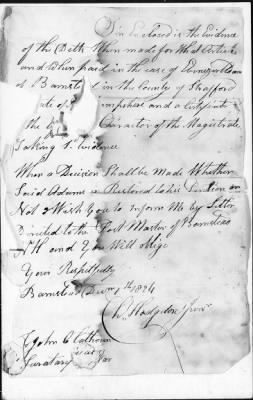 Sir Enclosed is the Evidence
of the Debts When made for What Article
and When paid in the case of Ebenezer Adams
of Barnstead in the County of Strafford
State of Hampshire and a Certificate
of the Character of the Magistrate
Taking Evidence
When a Decision Shall be Made Whether
Said Adams is Restored to his Pension or
Not I Wish You to Inform Me by Letter
Directed to the Post Master of Barnstead
N H and You Will oblige
Your Respectfully
Barnstead 1824
Hodgdon Junr
John C Calhoun
Secretary War